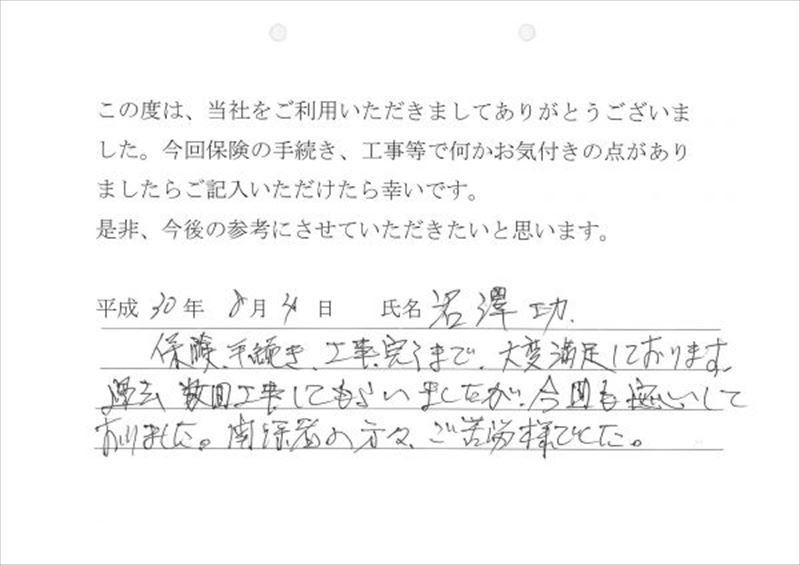 この度は、当社をご利用いただきましてありがとうございま
した。今回保険の手続き、工事等で何かお気付きの点があり
ましたらご記入いただけたら幸いです。
是非、今後の参考にさせていただきたいと思います。
平成 30 年 8 月 31 日 氏名 沼澤 功
保険、手続き、工事、完了まで、大変満足しております。
過去 数回工事してもらいましたが、今回も 安心して
おりました。関係者の方々、ご苦労様でした。